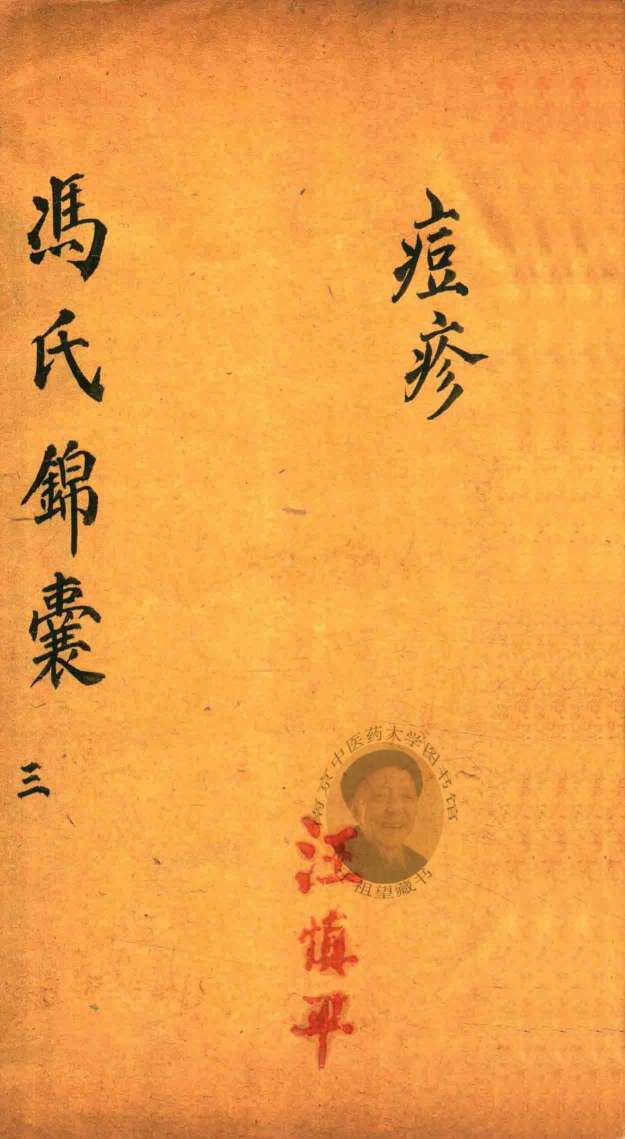 痘疹
馮氏錦囊 三
南京中医药大学图书馆
祖望藏书
汪慎平